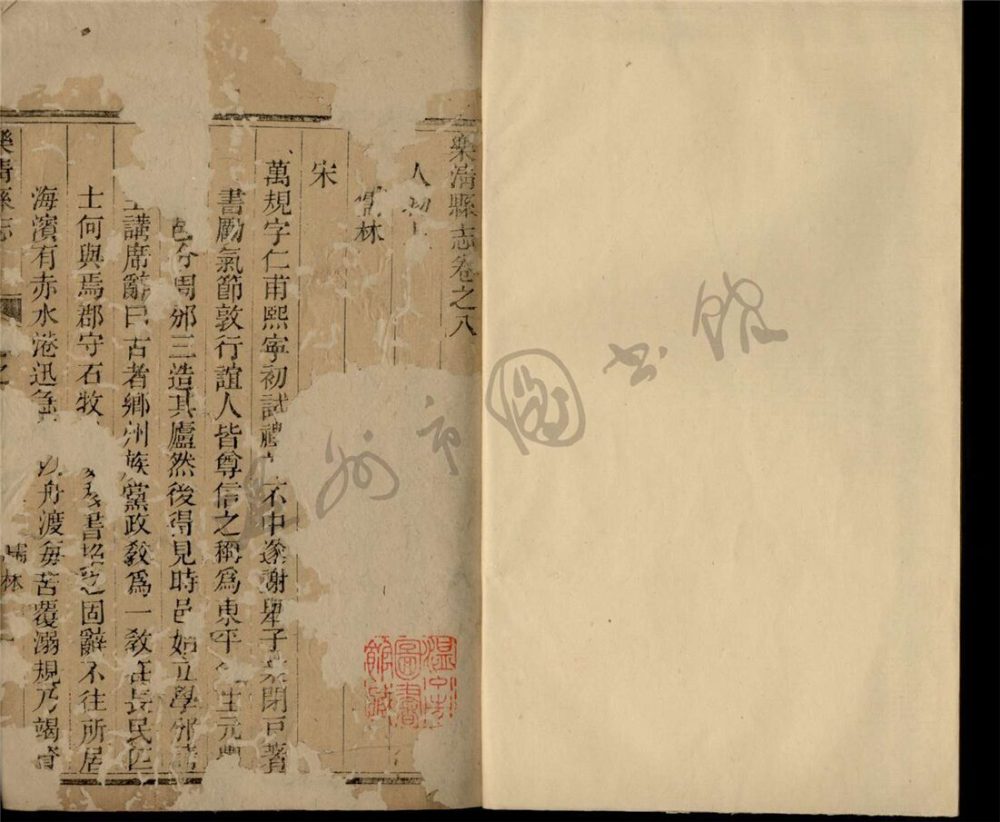 樂清縣志卷之八
人物
儒林
宋
萬規字仁甫熙寧初試禮 不中遂謝舉子業閉戸著
書勵氣節敦行誼人皆尊信之稱為東平 生元豐
周邠三造其廬然後得見時邑始立學邠請
講席辭曰古者鄉州族黨政教為一教在長民匹
士何與焉郡守石牧 書招之固辭不往所居
海濱有赤水港迅急 舟渡每苦覆溺規乃竭
樂清縣志
儒林
溫州市圖書館藏
州市圖书館